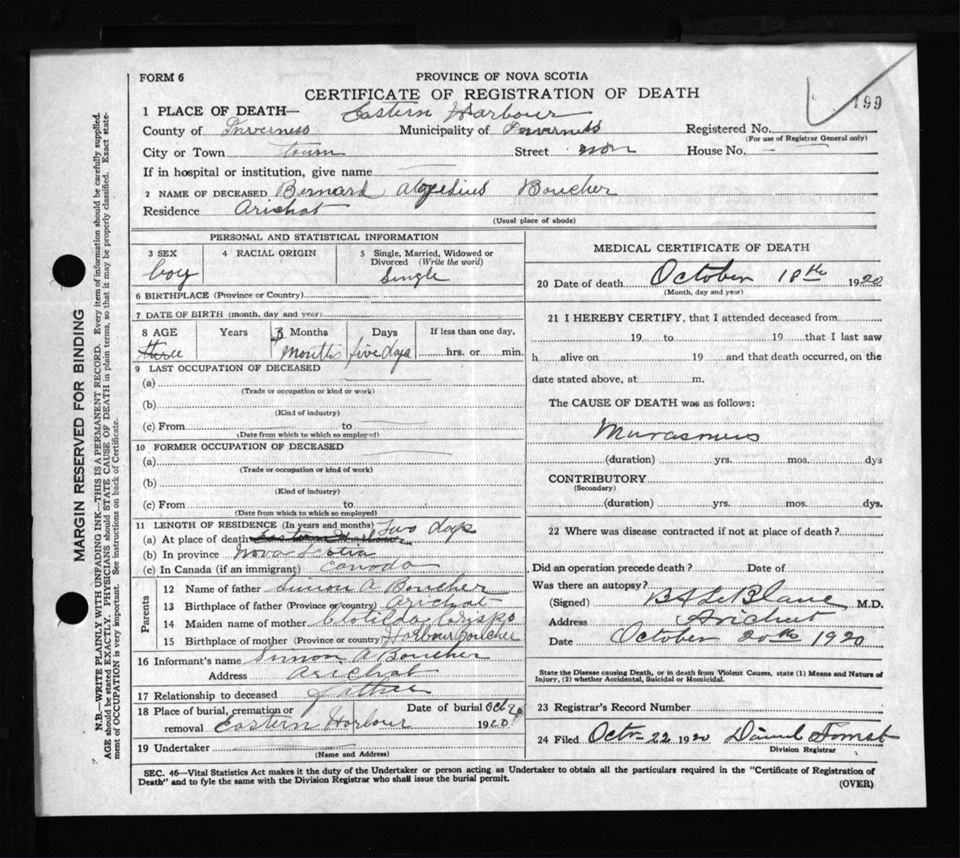 FORM 6
PROVINCE OF NOVA SCOTIA
CERTIFICATE OF REGISTRATION OF DEATH
199
1 PLACE OF DEATH— Eastern Harbour
County of Inverness Municipality of Inverness Registered No.
(For use of Registrar General only)
City or Town town Street non House No.
If in hospital or institution, give name
2 NAME OF DECEASED Bernard Boucher
Residence Arishat
(Usual place of abode)
PERSONAL AND STATISTICAL INFORMATION
3 SEX 4 RACIAL ORIGIN 5 Single, Married, Widowed or Divorced (Write the word)
boy Single
6 BIRTHPLACE (Province or Country)
7 DATE OF BIRTH (month, day and year)
8 AGE Years Months Days If less than one day,
three 3 Months five days hrs. or min.
9 LAST OCCUPATION OF DECEASED
(a)
(Trade or occupation or kind or work)
(b)
(Kind of industry)
(c) From to
(Date from which to which so employed)
10 FORMER OCCUPATION OF DECEASED
(a)
(Trade or occupation or kind of work)
(b)
(Kind of industry)
(c) From to
(Date from which to which so employed)
11 LENGTH OF RESIDENCE (In years and months) Two days
(a) At place of death Eastern Harbour
(b) In province Nova Scotia
(c) In Canada (if an immigrant) Canada
Parents
12 Name of father Simon A Boucher
13 Birthplace of father (Province or country) Arichat
14 Maiden name of mother Clotilda Crispo
15 Birthplace of mother (Province or country) Harbour Boucher
16 Informant's name Simon A Boucher
Address Arichat
17 Relationship to deceased father
18 Place of burial, cremation or Date of burial Oct 20
removal Eastern Harbour 1920
19 Undertaker
(Name and Address)
MEDICAL CERTIFICATE OF DEATH
20 Date of death October 18th 1920
(Month, day and year)
21 I HEREBY CERTIFY, that I attended deceased from
19 to 19 that I last saw
h alive on 19 and that death occurred, on the
date stated above, at m.
The CAUSE OF DEATH was as follows:
Murasmus
(duration) yrs. mos. dys
CONTRIBUTORY
(Secondary)
(duration) yrs. mos. dys.
22 Where was disease contracted if not at place of death?
Did an operation precede death? Date of
Was there an autopsy?
(Signed) B A LeBlanc M.D.
Address Arichat
Date October 20th 1920
State the Disease causing Death, or in death from Violent Causes, state (1) Means and Nature of
Injury, (2) whether Accidental, Suicidal or Homicidal.
23 Registrar's Record Number
24 Filed Octr 22 1920 Daniel
Division Registrar
SEC. 46—Vital Statistics Act makes it the duty of the Undertaker or person acting as Undertaker to obtain all the particulars required in the "Certificate of Registration of
Death" and to fyle the same with the Division Registrar who shall issue the burial permit.
(OVER)
MARGIN RESERVED FOR BINDING
N.B.—WRITE PLAINLY WITH UNFADING INK—THIS IS A PERMANENT RECORD. Every item of information should be carefully supplied.
AGE should be stated EXACTLY. PHYSICIANS should STATE CAUSE OF DEATH in plain terms, so that it may be properly classified. Exact state-
ment of OCCUPATION is very important. See instructions on back of Certificate.